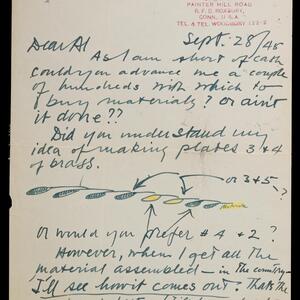 PAINTER HILL ROAD
R.F.D. ROXBURY,
CONN. U.S.A
TEL. & TEL. WOODBURY 122-2
Sept. 28/45
Dear Al
As I am short of cash
could you advance me a couple
of hundreds with which to
buy materials? or ain't
it done??
Did you understand my
idea of making plates 3 & 4
of brass.
or 3 & 5 ?
or would you prefer # 4 & 2?
However, when I get all the
material assembled – in the country –
I'll see how it comes out. That's the